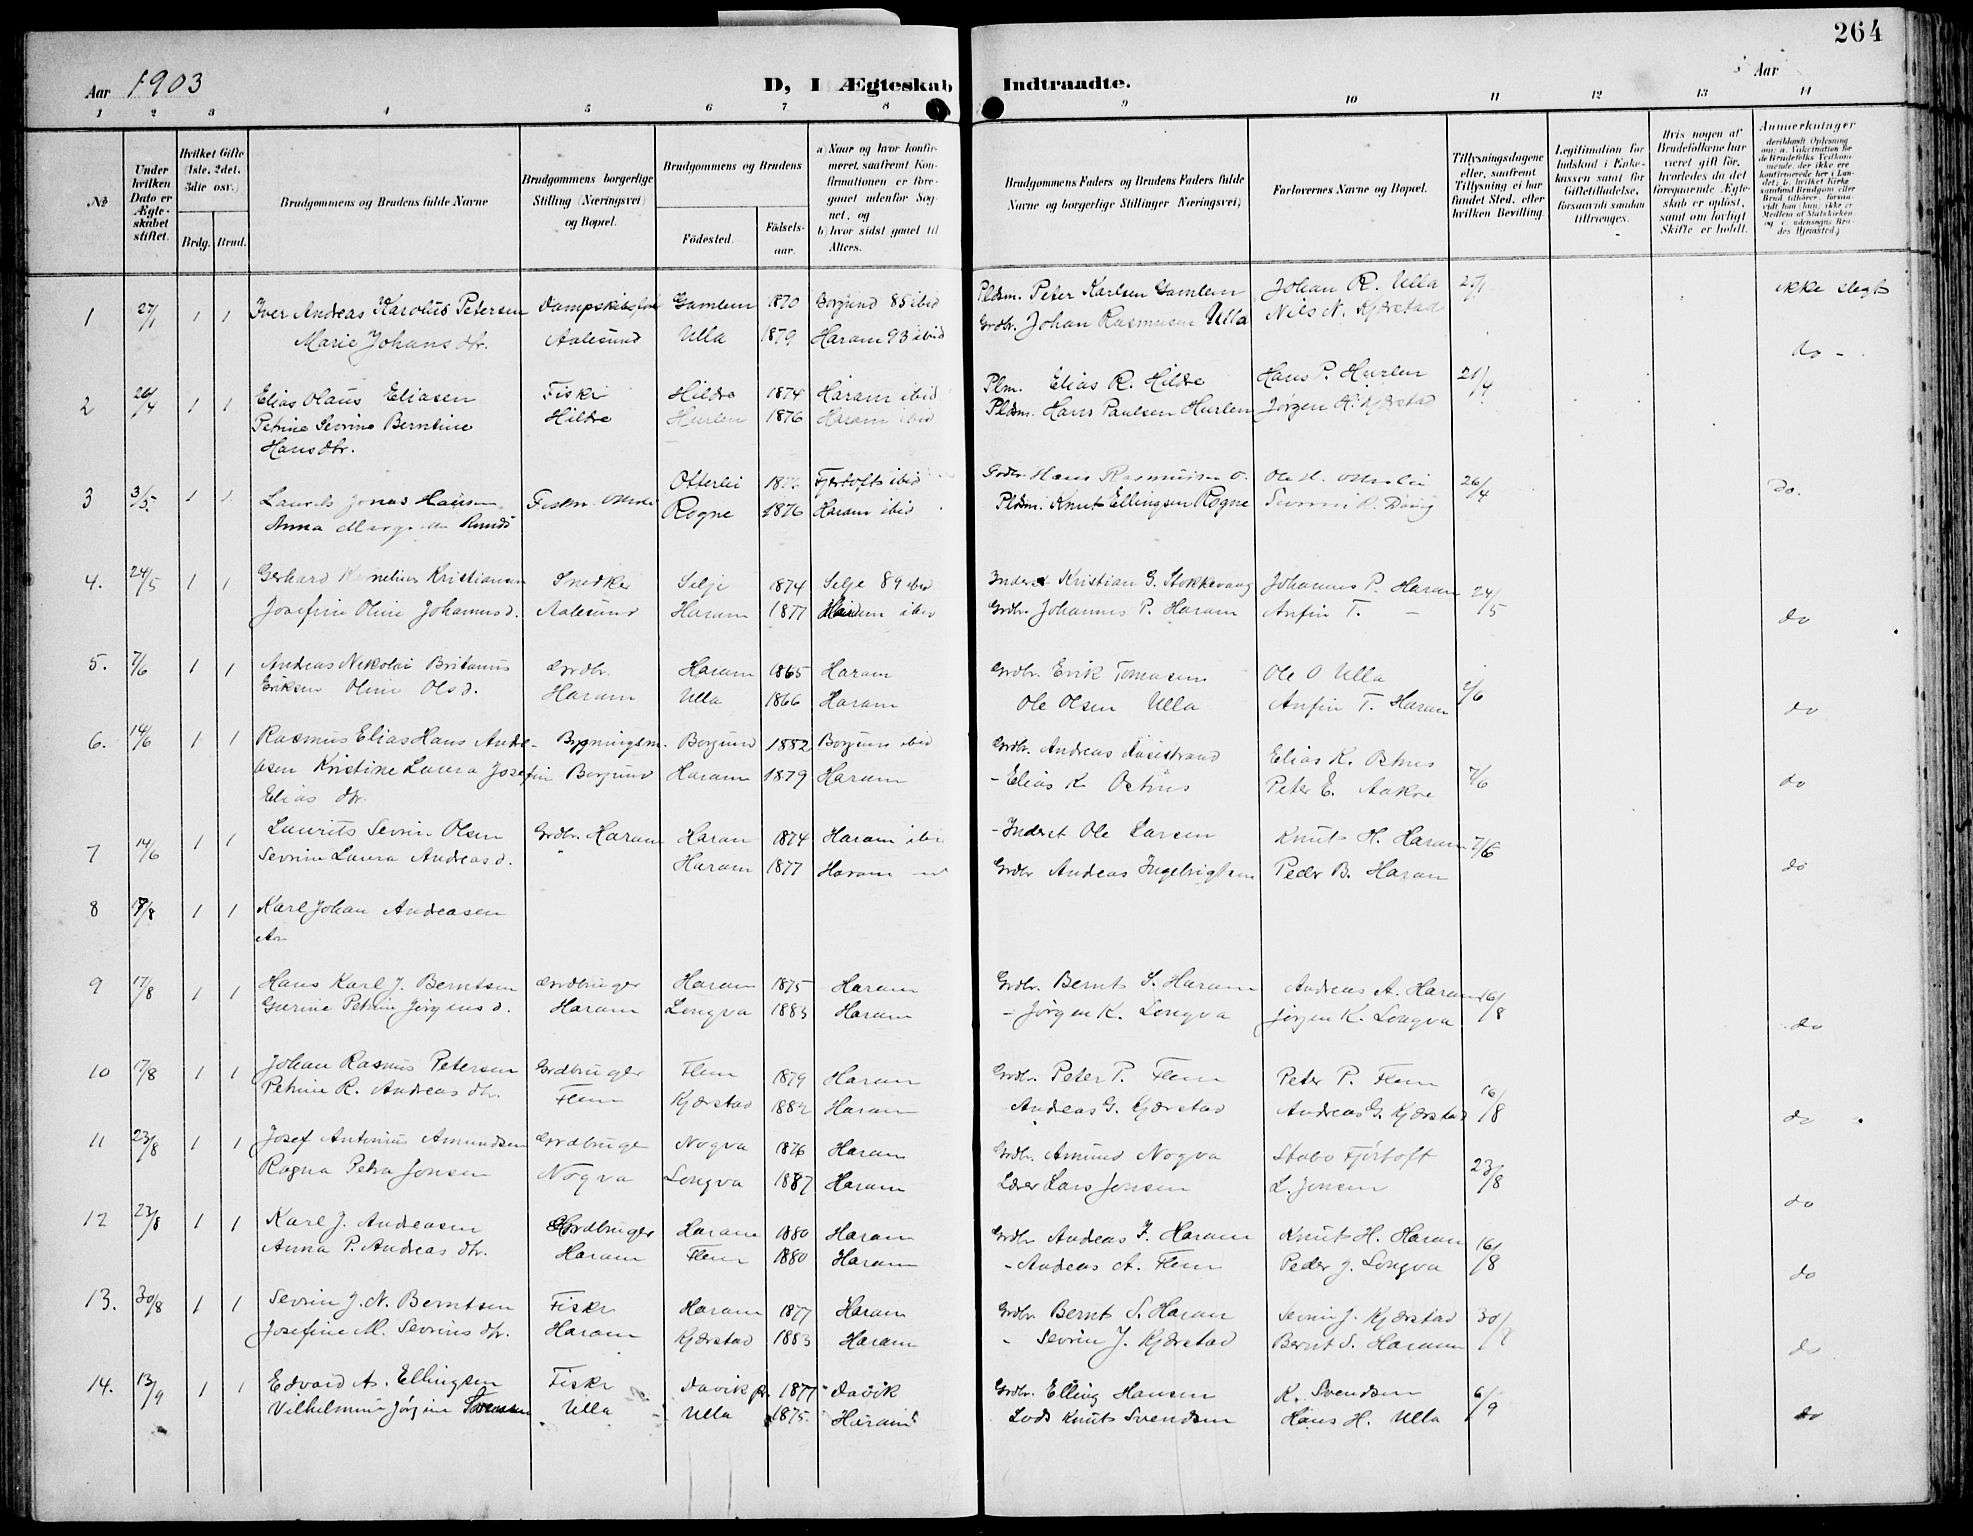 264
Aar 1903
D, I Ægteskab Indtraadte.
Aar
1 2 3 4 5 6 7 8 9 10 11 12 13 14
№
Under hvilken Dato er Ægteskabet stiftet.
Hvilket Gifte (1ste, 2det, 3die osv.)
Brdg. Brud.
Brudgommens og Brudens fulde Navne
Brudgommens borgerlige Stilling (Næringsvei) og Bopæl.
Brudgommens og Brudens
Fødested.
Fødselsaar.
a) Naar og hvor konfirmeret, saafremt Konfirmationen er foregaaet udenfor Sognet, og
b) hvor sidst gaaet til Alters.
Brudgommens Faders og Brudens Faders fulde Navne og borgerlige Stillinger (Næringsvei)
Forlovernes Navne og Bopæl.
Tillysningsdagene eller, saafremt Tillysning ei har fundet Sted, efter hvilken Bevilling.
Legitimation for Indskud i Enkekassen samt for Giftetilladelse, forsaavidt saadan tiltrænges.
Hvis nogen af Brudefolkene har været gift før, hvorledes da det foregaaende Ægteskab er opløst, samt om lovligt Skifte er holdt.
Anmerkninger
1 27/1 1 1 Iver Andreas Karolus Petersen Gamlem 1870 Borgund 85 ibid Pldsm. Peter Karlsen Gamlem Johan R. Ulla 25/1 ikke slegt
Marie Johans dtr. Aalesund Ulla 1879 Haram 93 ibid Grdbr. Johan Rasmusen Ulla Nils N. Kjærstad
2 26/4 1 1 Elias Olaus Eliasen Fisker Hildre 1874 Haram ibid Plm. Elias R. Hildre Hans P. Hurlen 21/4 do -
Petrine Sevrine Berntine Hildre Hurlen 1876 Haram ibid Pldsm. Hans Paulsen Hurlen Jørgen H. Kjærstad
Hansdtr.
3 3/5 1 1 Laurits Jonas Hansen Fisker Otterlei Otterlei Fjørtoft ibid Grdbr. Hans Rasmussen O. Ole H. Otterlei 26/4 do.
Anna Knuds Rogne 1876 Haram ibid Pldsm. Knut Ellingsen Rogne
4. 24/5 1 1 Gerhard Kornelius Kristiansen Snedker Selje 1874 Selje 89 ibid Inderst Kristian G. Stokkevaag Johannes P. Haram 24/5
Josefine Oline Johannesd. Aalesund Haram 1877 Haram ibid Grdbr. Johannes P. Haram Anfin T. - do
5. 7/6 1 1 Andreas Nikolai Britanus Grdbr. Haram 1865 Haram Grdbr. Erik Tomasen Ole O Ulla
Eriksen Oline Olsd. Haram Ulla 1866 Haram Ole Olsen Ulla Anfin T. Haram do
6. 14/6 1 1 Rasmus Elias Hans Andre- Bygningsm. Borgund 1882 Borgund ibid Grdbr. Andreas Elias K. Østnes
asen Kristine Laura Josefine Borgund Haram 1879 Haram - Elias K. Østnes Peter E. Aakre 7/6 do
Elias dtr.
7 14/6 1 1 Laurits Sevrin Olsen Grdbr. Haram Haram 1874 Haram ibid - Inderst Ole Larsen Knut H. Haram 7/6
Sevrine Laura Andreasd. Haram 1877 Haram Grdbr Andreas Ingebrigtsen Peder B. Haram do
8 1 1 Karl Johan Andreasen
An
9 17/8 1 1 Hans Karl J. Berntsen Grdbruger Haram 1875 Haram Grdbr. Bernt S. Haram Andreas A. Haram 16/8
Gurine Petrine Jørgensd. Haram Longva 1883 Haram - Jørgen K. Longva Jørgen K. Longva do
10 17/8 1 1 Johan Rasmus Petersen Grdbruger Flem 1879 Haram Grdbr. Peter P. Flem Peter P. Flem 16/8
Petrine R. Andreas dtr. Flem Kjærstad 1882 Haram Andreas G. Kjærstad Andreas G. Kjærstad do
11 23/8 1 1 Josef Antinius Amundsen Grdbruger Nogva 1876 Haram Grdbr. Amund Nogva Fjørtoft 23/8
Ragna Petra Jonsen Nogva Longva 1887 Haram Lærer Lars Jonsen L. Jonsen do
12 23/8 1 1 Karl J. Andreasen Grdbruger Haram 1880 Haram Grdbr Andreas J. Haram Knut H. Haram 16/8
Anna P. Andreas dtr. Haram Flem 1880 Haram - Andreas A. Flem Peder J. Longva do
13. 30/8 1 1 Sevrin J. N. Berntsen Fisker Haram 1877 Haram Grdbr. Bernt S. Haram Sevrin J. Kjærstad
Josefine M. Sevrins dtr. Haram Kjærstad 1883 Haram - Sevrin J. Kjærstad Bernt S. Haram do
14. 13/9 1 1 Edvard A. Ellingsen Fisker Davik 1877 Davik Grdbr. Elling Hansen K. Svendsen 6/9
Vilhelmine Jørgine Svensen Ulla Ulla 1875 Haram Lods Knut Svendsen Hans H. Ulla do